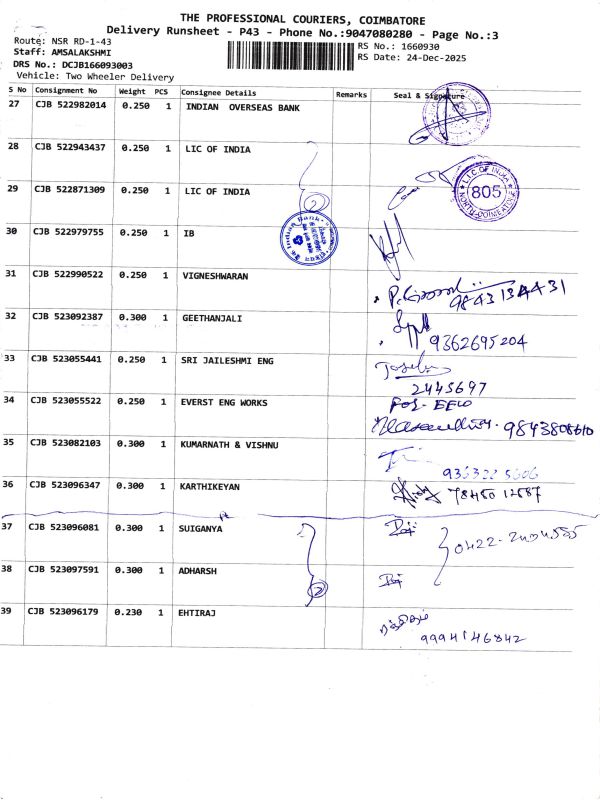 THE PROFESSIONAL COURIERS, COIMBATORE
Delivery Runsheet - P43 - Phone No.:9047080280 - Page No.:3
Route: NSR RD-1-43
RS No.: 1660930
Staff: AMSALAKSHMI
RS Date: 24-Dec-2025
DRS No.: DCJB166093003
Vehicle: Two Wheeler Delivery
S No Consignment No Weight PCS Consignee Details Remarks Seal & Signature
27 CJB 522982014 0.250 1 INDIAN OVERSEAS BANK
28 CJB 522943437 0.250 1 LIC OF INDIA
29 CJB 522871309 0.250 1 LIC OF INDIA 2 L.I.C OF INDIA 805
30 CJB 522979755 0.250 1 IB
31 CJB 522990522 0.250 1 VIGNESHWARAN 9843134431
32 CJB 523092387 0.300 1 GEETHANJALI 9362695204
33 CJB 523055441 0.250 1 SRI JAILESHMI ENG 2445697
34 CJB 523055522 0.250 1 EVERST ENG WORKS 9843808610
35 CJB 523082103 0.300 1 KUMARNATH & VISHNU
36 CJB 523096347 0.300 1 KARTHIKEYAN
37 CJB 523096081 0.300 1 SUIGANYA
38 CJB 523097591 0.300 1 ADHARSH 2
39 CJB 523096179 0.230 1 EHTIRAJ 9994146842